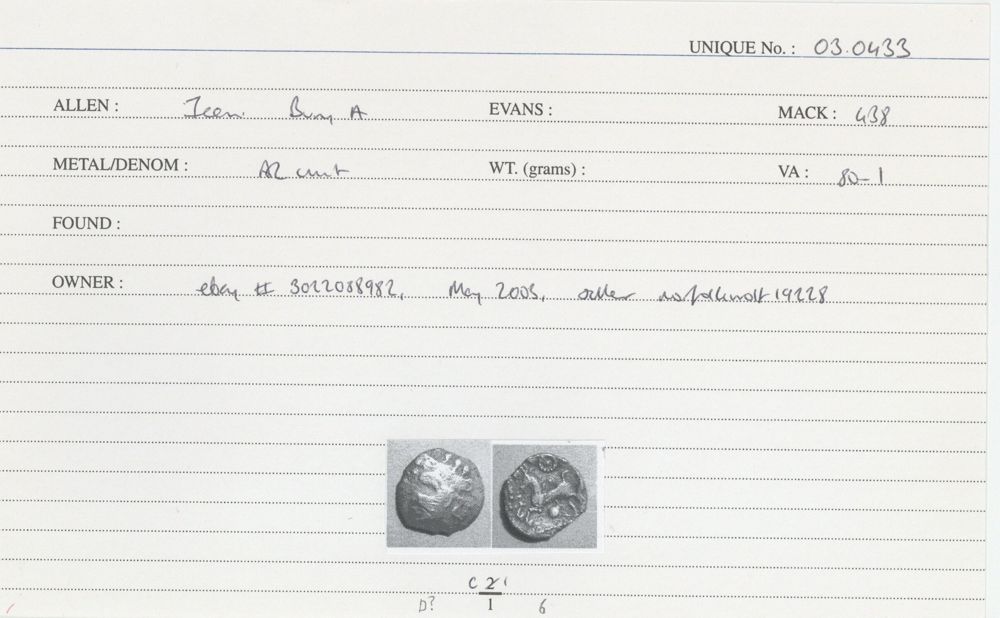 UNIQUE No. : 03.0433
ALLEN : Iceni Bury A EVANS : MACK : 438
METAL/DENOM : AR unit WT. (grams) : VA : 80-1
FOUND :
OWNER : ebay # 3022088982, May 2003, seller norfolkwolf 19228
C 2 1
D? 1 6